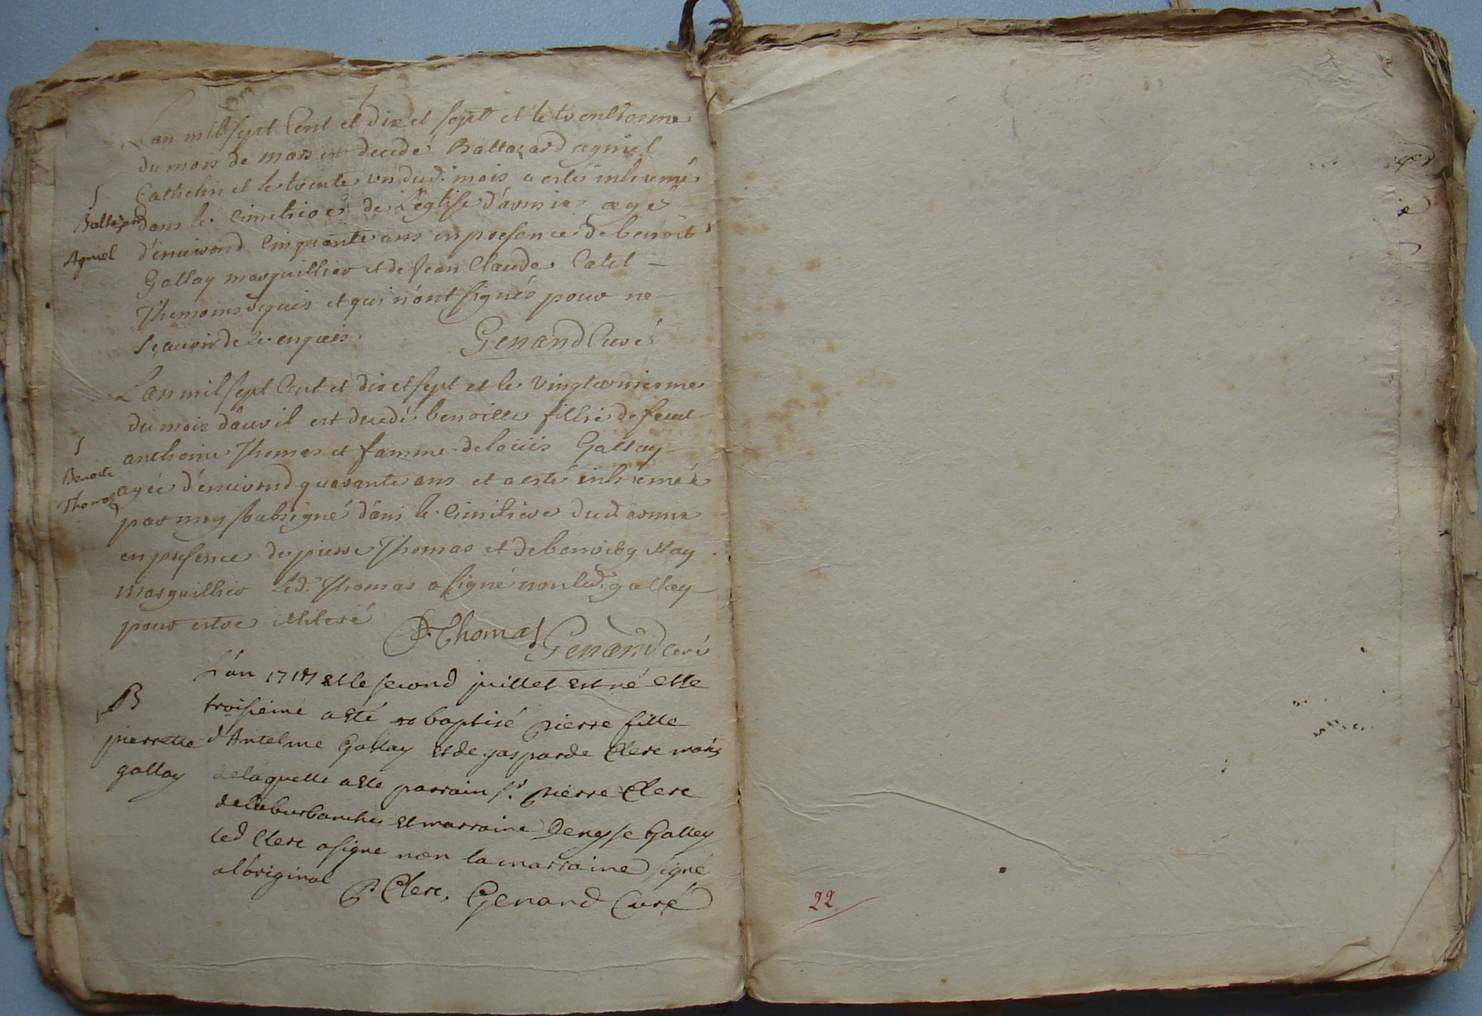 L'an mil sept Cent et dix et sept et le trentieme
du mois de mars est decedé Baltazard agniel
Cathelin et le trente un dud. mois a esté inhumé
dans le Cimitiere de L'eglise d'armix agé
d'environd Cinquante ans en presence de benoit
Gallay marguillier et de Jean Claude Catel
Themoins requis et qui n'ont signés pour ne
sçavoir de ce enquis.
Genand Curé
S
Baltazard
Agniel
L'an mil sept Cent et dix et sept et le vingt
du mois d'avril est decedé benoitte fillie de feut
anthoine Thomas et famme de loüis Gallay
agée d'environd quarante ans et a esté inhumée
par moy soubsigné dans le Cimitiere dud. armix
en presence de pierre Thomas et de benoit gallay
marguillier led. Thomas a signé non led. gallay
pour estre illiteré
P. Thomas Genand Curé
S
Benoite
Thomas
L'an 1717 et le second juillet est né et le
troisieme a esté baptisé pierre fille
d'Antelme Gallay et de gasparde Clerc mariés
de laquelle a esté parrain sr. pierre Clerc
et marraine Denysse Gallay
led Clerc a signe non la marraine signé
a l'original P. Clerc. Genand Curé
B
pierrette
gallay
22